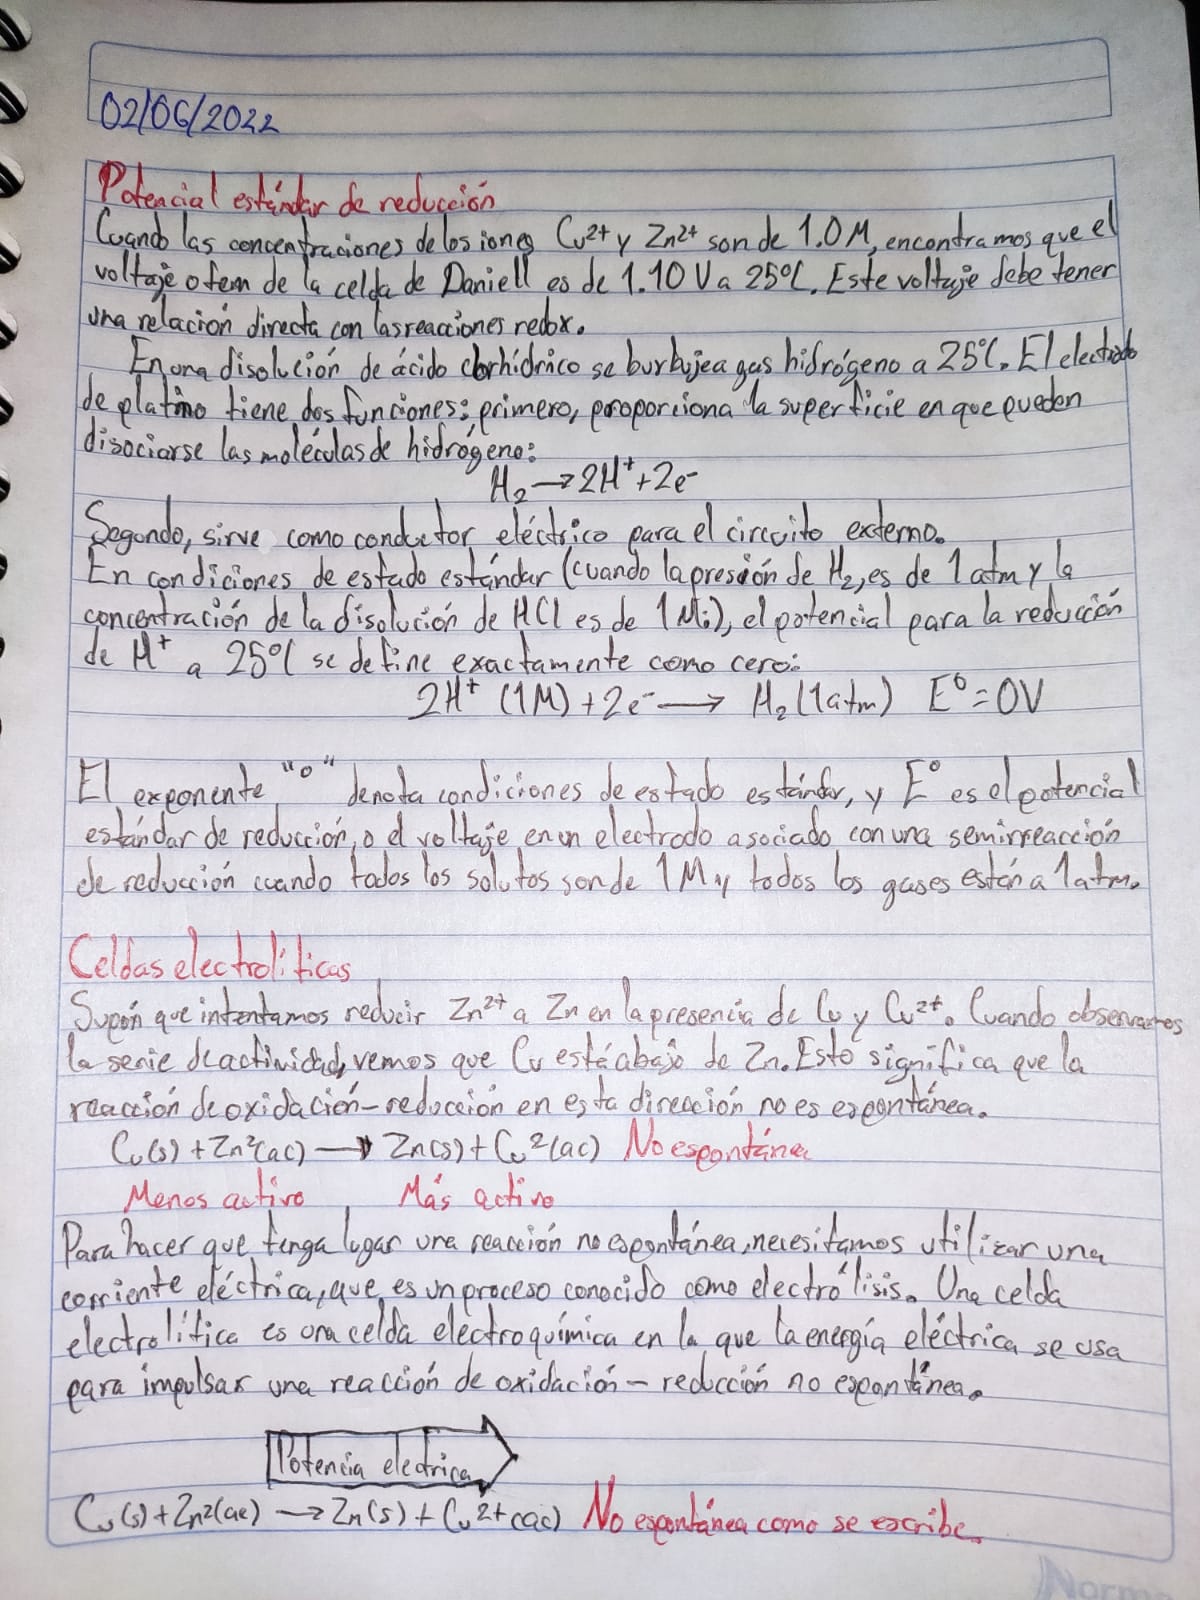 02/06/2022
Potencial estándar de reducción
Cuando las concentraciones de los iones Cu²⁺ y Zn²⁺ son de 1.0 M, encontramos que el
voltaje o fem de la celda de Daniell es de 1.10 V a 25°C. Este voltaje debe tener
una relación directa con las reacciones redox.
En una disolución de ácido clorhídrico se burbujea gas hidrógeno a 25°C. El electrodo
de platino tiene dos funciones: primero, proporciona la superficie en que pueden
disociarse las moléculas de hidrógeno:
H₂ → 2H⁺ + 2e⁻
Segundo, sirve como conductor eléctrico para el circuito externo.
En condiciones de estado estándar (cuando la presión de H₂, es de 1 atm y la
concentración de la disolución de HCl es de 1 M;), el potencial para la reducción
de H⁺ a 25°C se define exactamente como cero:
2H⁺ (1M) + 2e⁻ → H₂ (1atm) E° = 0V
El exponente "o" denota condiciones de estado estándar, y E° es el potencial
estándar de reducción, o el voltaje en un electrodo asociado con una semirreacción
de reducción cuando todos los solutos son de 1 M y todos los gases están a 1 atm.
Celdas electrolíticas
Supón que intentamos reducir Zn²⁺ a Zn en la presencia de Cu y Cu²⁺. Cuando observamos
la serie de actividad, vemos que Cu está abajo de Zn. Esto significa que la
reacción de oxidación-reducción en esta dirección no es espontánea.
Cu(s) + Zn²(ac) → Zn(s) + Cu²(ac) No espontánea
Menos activo Más activo
Para hacer que tenga lugar una reacción no espontánea, necesitamos utilizar una
corriente eléctrica, que es un proceso conocido como electrólisis. Una celda
electrolítica es una celda electroquímica en la que la energía eléctrica se usa
para impulsar una reacción de oxidación-reducción no espontánea.
Potencia electrica
Cu(s) + Zn²(ac) → Zn(s) + Cu²⁺(ac) No espontánea como se escribe.
Norma